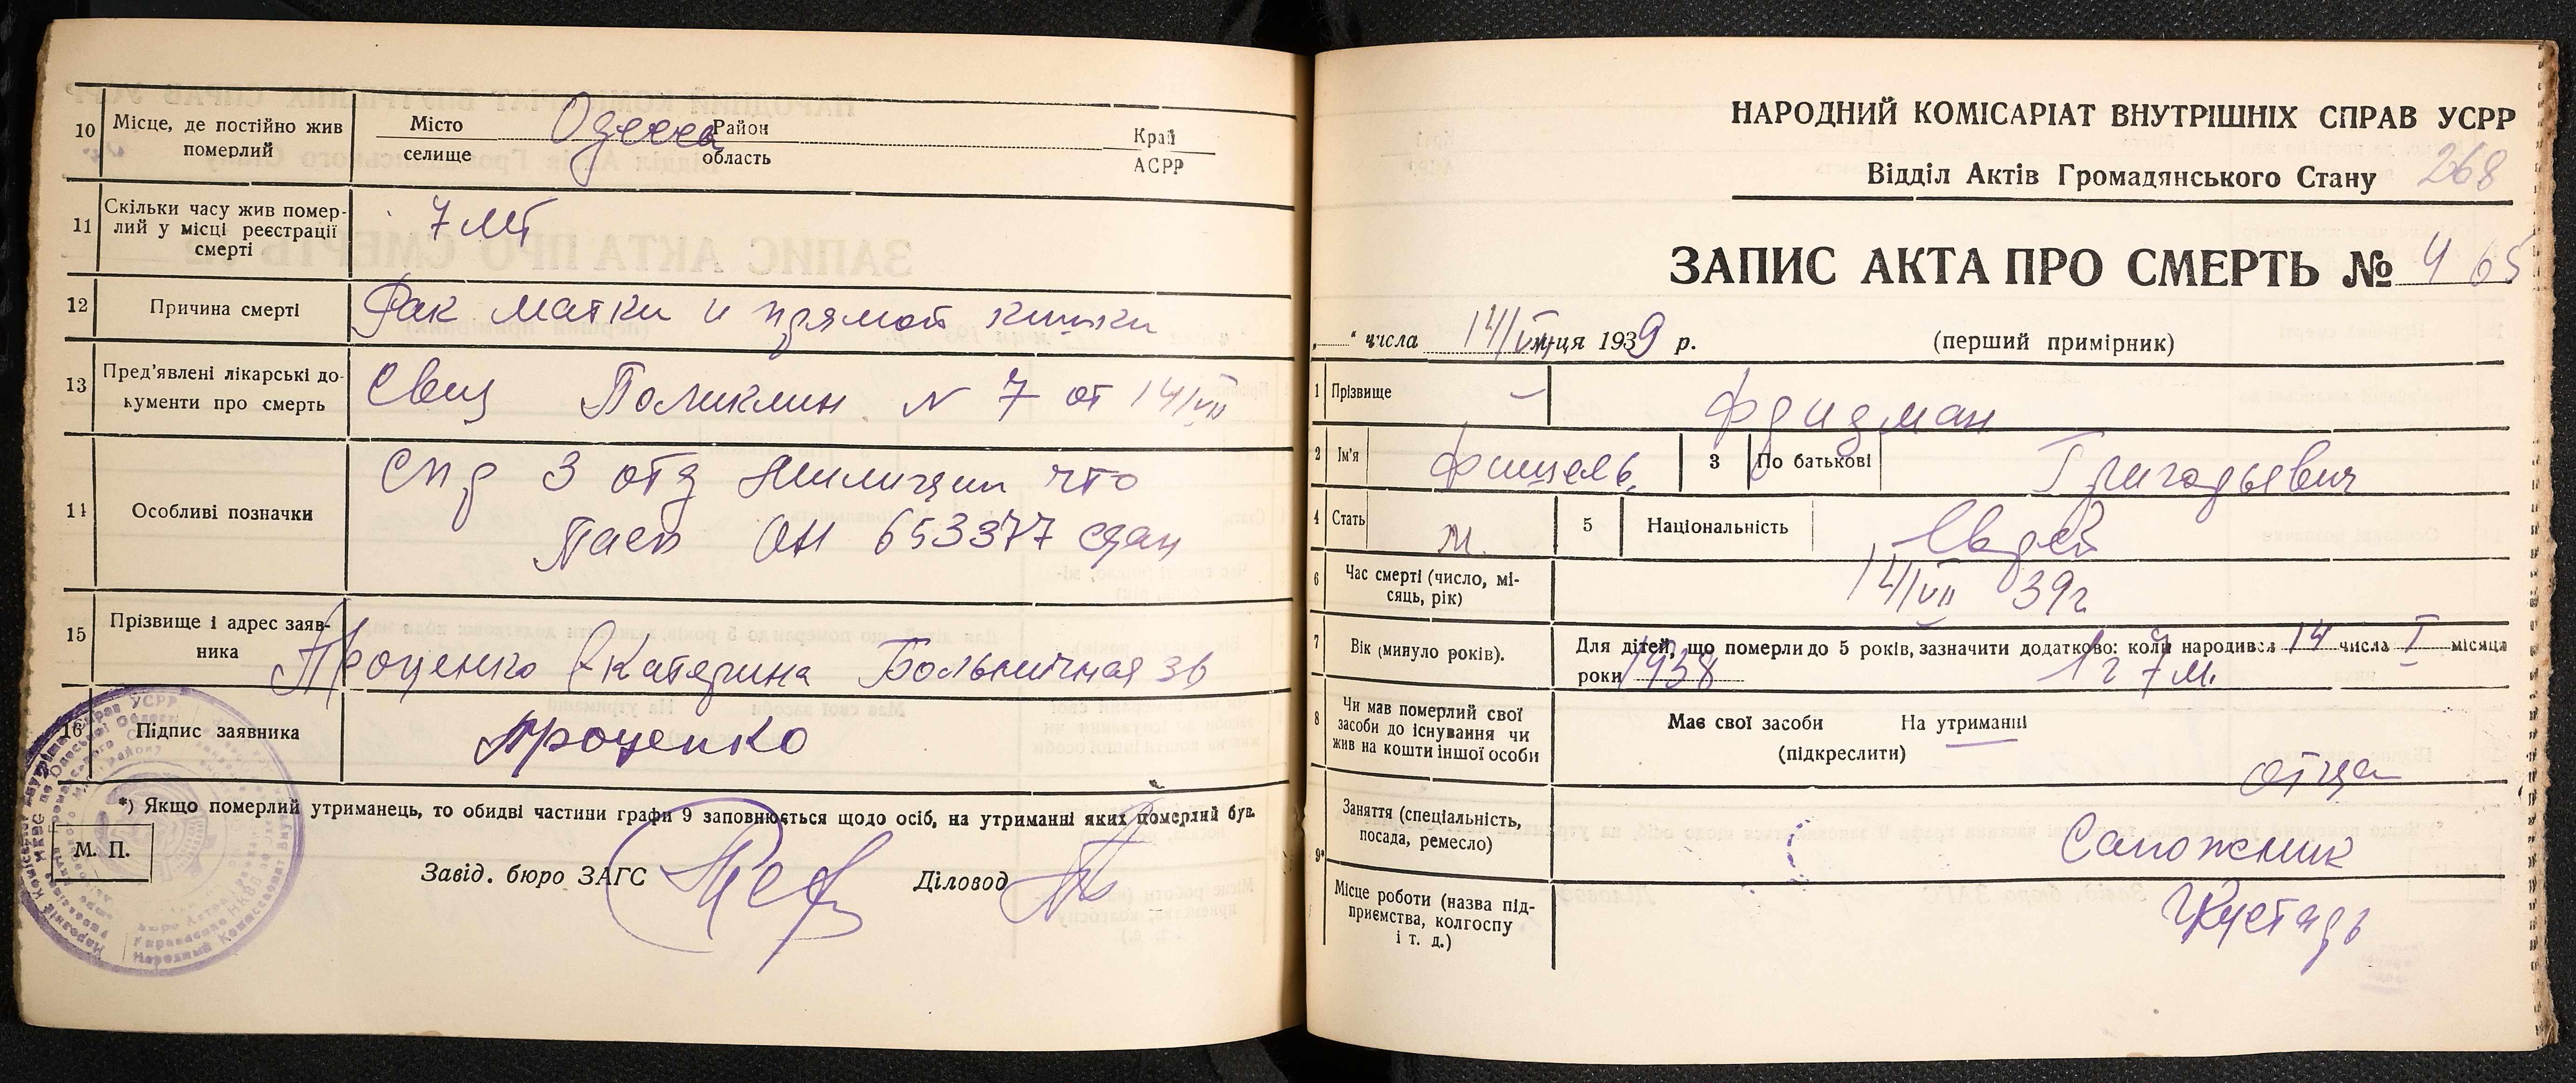 10 Місце, де постійно жив померлий
Місто селище Одесса Район область Край АСРР
11 Скільки часу жив помер-
лий у місці реєстрації
смерті
7 лет
12 Причина смерті Рак матки и прямой кишки
13 Пред'явлені лікарські до-
кументи про смерть
Свид Поликлин N 7 от 14/VII
14 Особливі позначки
Спр 3 отд Милиции что
Пасп ОН 653377 сдан
15 Прізвище і адрес заяв-
ника
Проценко Екатерина Больничная 36
16 Підпис заявника Проценко
*) Якщо померлий утриманець, то обидві частини графи 9 заповнюється щодо осіб, на утриманні яких померлий був.
М. П.
Завід. бюро ЗАГС Діловод
НАРОДНИЙ КОМІСАРІАТ ВНУТРІШНІХ СПРАВ УСРР
Відділ Актів Громадянського Стану 268
ЗАПИС АКТА ПРО СМЕРТЬ № 465
„ “ числа 14/VII м-ця 1939 р. (перший примірник)
1 Прізвище Фридман
2 Ім'я Фишель 3 По батькові Григорьевич
4 Стать м. 5 Національність Еврей
6 Час смерті (число, мі-
сяць, рік)
14/VII 39г
7 Вік (минуло років).
Для дітей, що померли до 5 років, зазначити додатково: коли народився 14 числа I місяця
роки 1938 1 г 7 м.
8 Чи мав померлий свої
засоби до існування чи
жив на кошти іншої особи
Має свої засоби На утриманні
(підкреслити)
отца
9* Заняття (спеціальність,
посада, ремесло)
Сапожник
Місце роботи (назва під-
приємства, колгоспу
і т. д.)
Кустарь